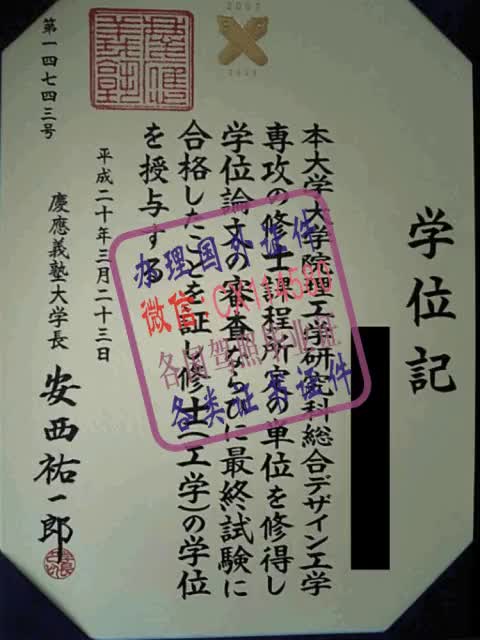 学位記
本大学大学院理工学研究科総合デザイン工学
専攻の修士課程所定の単位を修得し
学位論文の審査ならびに最終試験に
合格したことを証し修士(工学)の学位
を授与する
平成二十年三月二十三日
慶應義塾大学長 安西祐一郎
第一四七四三号
办理国外证件
微信:
各国驾照毕业证
各类证案证件